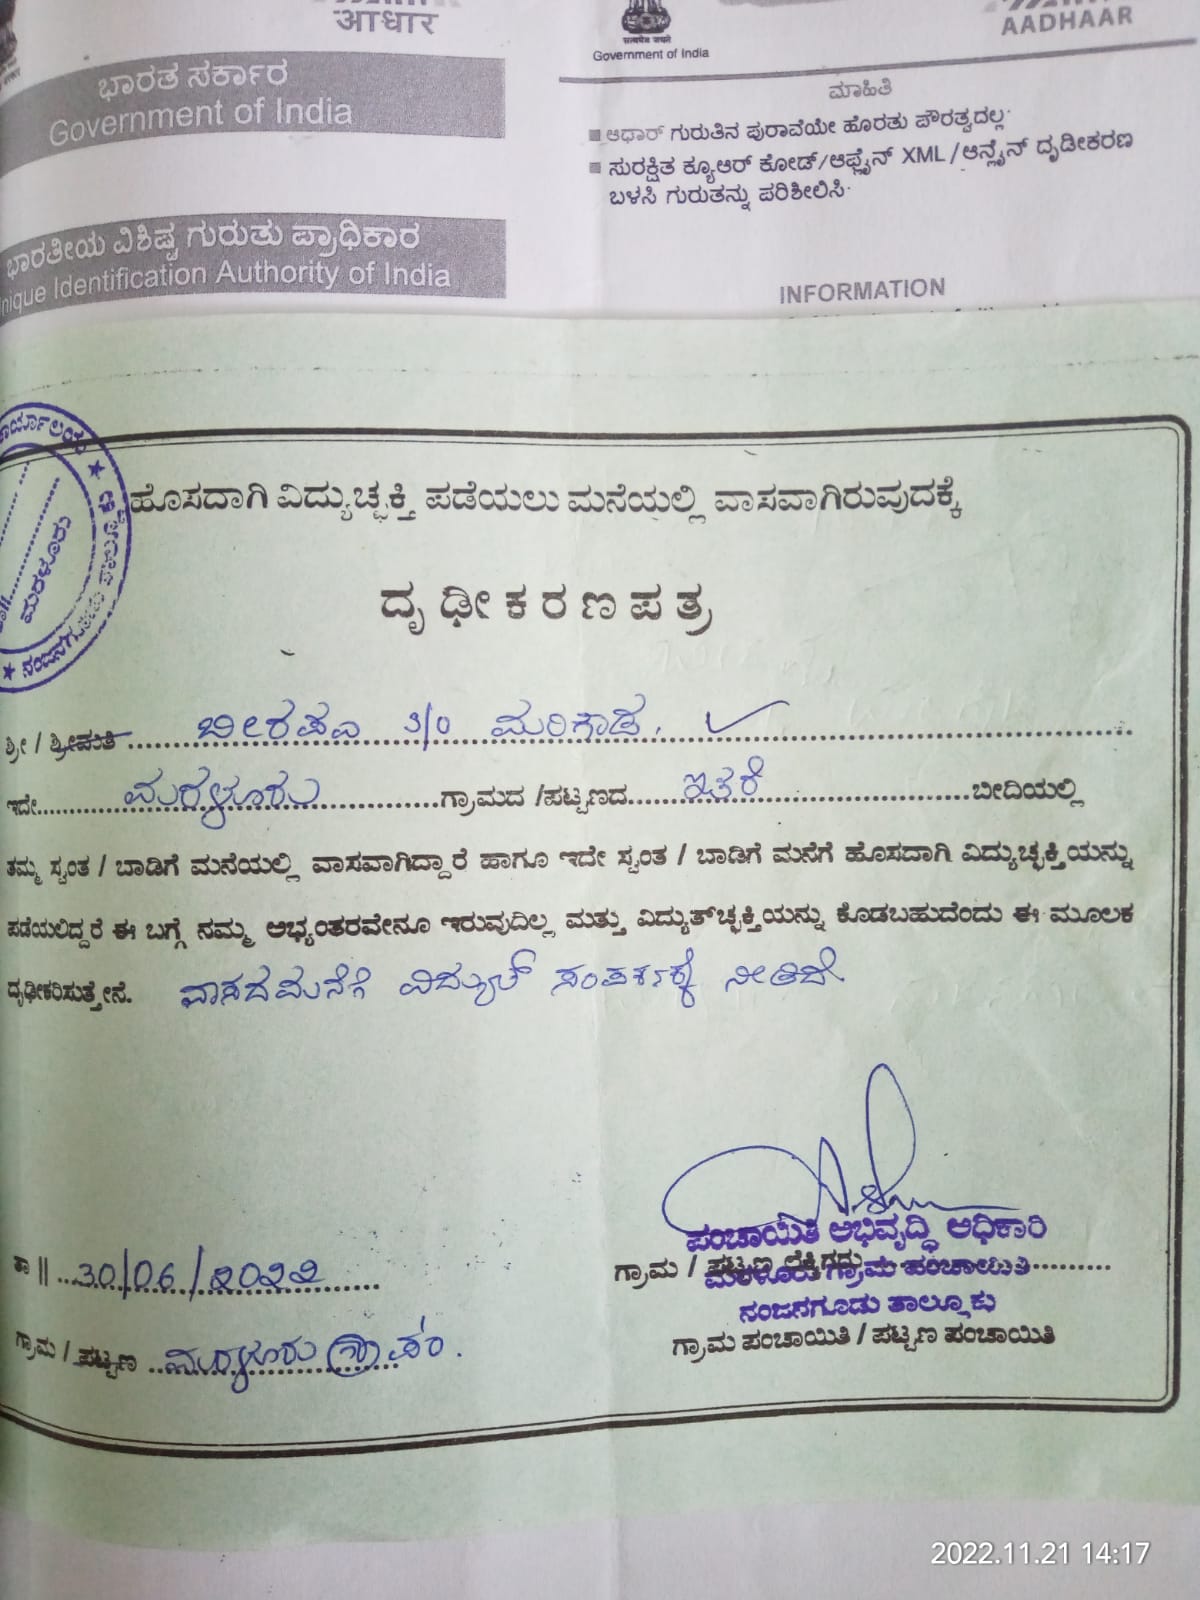 आधार
AADHAAR
सत्यमेव जयते
Government of India
ಭಾರತ ಸರ್ಕಾರ
Government of India
ಮಾಹಿತಿ
■ ಆಧಾರ್ ಗುರುತಿನ ಪುರಾವೆಯೇ ಹೊರತು ಪೌರತ್ವದಲ್ಲ.
■ ಸುರಕ್ಷಿತ ಕ್ಯೂಆರ್ ಕೋಡ್/ಆಫ್ಲೈನ್ XML/ಆನ್ಲೈನ್ ದೃಡೀಕರಣ
ಬಳಸಿ ಗುರುತನ್ನು ಪರಿಶೀಲಿಸಿ.
ಭಾರತೀಯ ವಿಶಿಷ್ಟ ಗುರುತು ಪ್ರಾಧಿಕಾರ
nique Identification Authority of India
INFORMATION
ಮರಳೂರು
ಹೊಸದಾಗಿ ವಿದ್ಯುಚ್ಛಕ್ತಿ ಪಡೆಯಲು ಮನೆಯಲ್ಲಿ ವಾಸವಾಗಿರುವುದಕ್ಕೆ
ದೃಢೀಕರಣಪತ್ರ
ಶ್ರೀ / ಶ್ರೀಮತಿ ........ S/o ........
ಇದೇ........ಗ್ರಾಮದ /ಪಟ್ಟಣದ........ಇತರೆ........ಬೀದಿಯಲ್ಲಿ
ತಮ್ಮ ಸ್ವಂತ / ಬಾಡಿಗೆ ಮನೆಯಲ್ಲಿ ವಾಸವಾಗಿದ್ದಾರೆ ಹಾಗೂ ಇದೇ ಸ್ವಂತ / ಬಾಡಿಗೆ ಮನೆಗೆ ಹೊಸದಾಗಿ ವಿದ್ಯುಚ್ಛಕ್ತಿಯನ್ನು
ಪಡೆಯಲಿದ್ದರೆ ಈ ಬಗ್ಗೆ ನಮ್ಮ ಅಭ್ಯಂತರವೇನೂ ಇರುವುದಿಲ್ಲ ಮತ್ತು ವಿದ್ಯುತ್‌ಚ್ಛಕ್ತಿಯನ್ನು ಕೊಡಬಹುದೆಂದು ಈ ಮೂಲಕ
ದೃಢೀಕರಿಸುತ್ತೇನೆ. ವಾಸದಮನೆಗೆ ವಿದ್ಯುತ್ ಸಂಪರ್ಕಕ್ಕೆ ನೀಡಿದೆ
ಪಂಚಾಯಿತಿ ಅಭಿವೃದ್ಧಿ ಅಧಿಕಾರಿ
ತಾ || ...30/06/2022......
ಗ್ರಾಮ / ಪಟ್ಟಣ
ಮರಳೂರು ಗ್ರಾಮ ಪಂಚಾಯಿತಿ
ನಂಜನಗೂಡು ತಾಲ್ಲೂಕು
ಗ್ರಾಮ / ಪಟ್ಟಣ ........ ಗ್ರಾ ಪಂ.
ಗ್ರಾಮ ಪಂಚಾಯಿತಿ / ಪಟ್ಟಣ ಪಂಚಾಯಿತಿ
2022.11.21 14:17